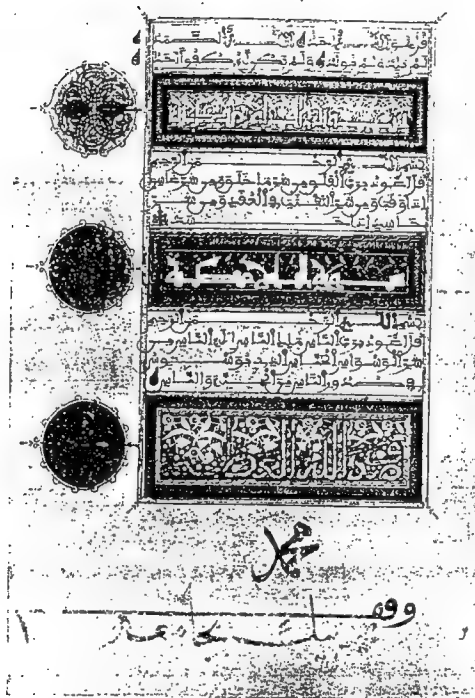 قل هو الله احد الله الصمد
لم يلد ولم يولد ولم يكن له كفؤا احد
بسم الله الرحمن الرحيم
قل اعوذ برب الفلق من شر ما خلق ومن شر غاسق
اذا وقب ومن شر النفثت في العقد ومن شر
حاسد اذا حسد
بسم الله الرحمن الرحيم
قل اعوذ برب الناس ملك الناس اله الناس من
شر الوسواس الخناس الذي يوسوس
في صدور الناس من الجنة والناس
صدق الله العظيم
محمد
وقف